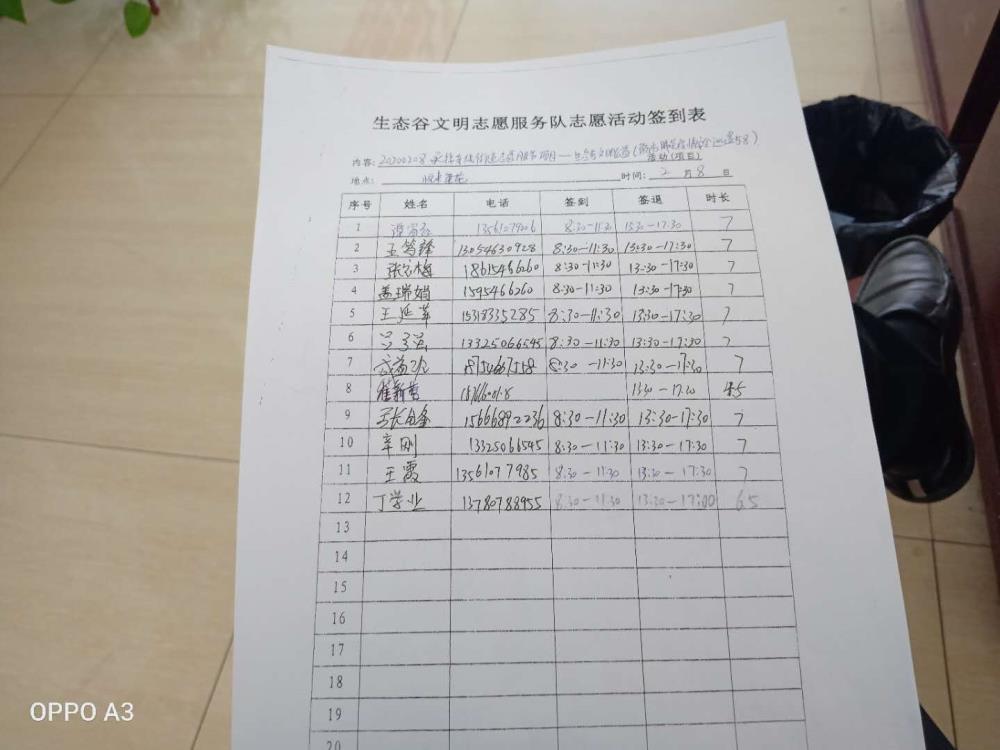 生态谷文明志愿服务队志愿活动签到表
内容: 20200208 活动(项目)
地点: 时间: 2 月 8 日
序号 姓名 电话 签到 签退 时长
1 8:30-11:30 13:30-17:30 7
2 王笃锋 13054630928 8:30-11:30 13:30-17:30 7
3 18615466260 8:30-11:30 13:30-17:30 7
4 盖瑞娟 1595466260 8:30-11:30 13:30-17:30 7
5 王延革 15318335285 8:30-11:30 13:30-17:30 7
6 13325066545 8:30-11:30 13:30-17:30 7
7 18754667518 8:30-11:30 13:30-17:30 7
8 13:30-17:30 4.5
9 15666892236 8:30-11:30 13:30-17:30 7
10 辛刚 13325066545 8:30-11:30 13:30-17:30 7
11 王霞 13561077985 8:30-11:30 13:30-17:30 7
12 丁学业 13780788955 8:30-11:30 13:30-17:00 6.5
13
14
15
16
17
18
19
20
OPPO A3